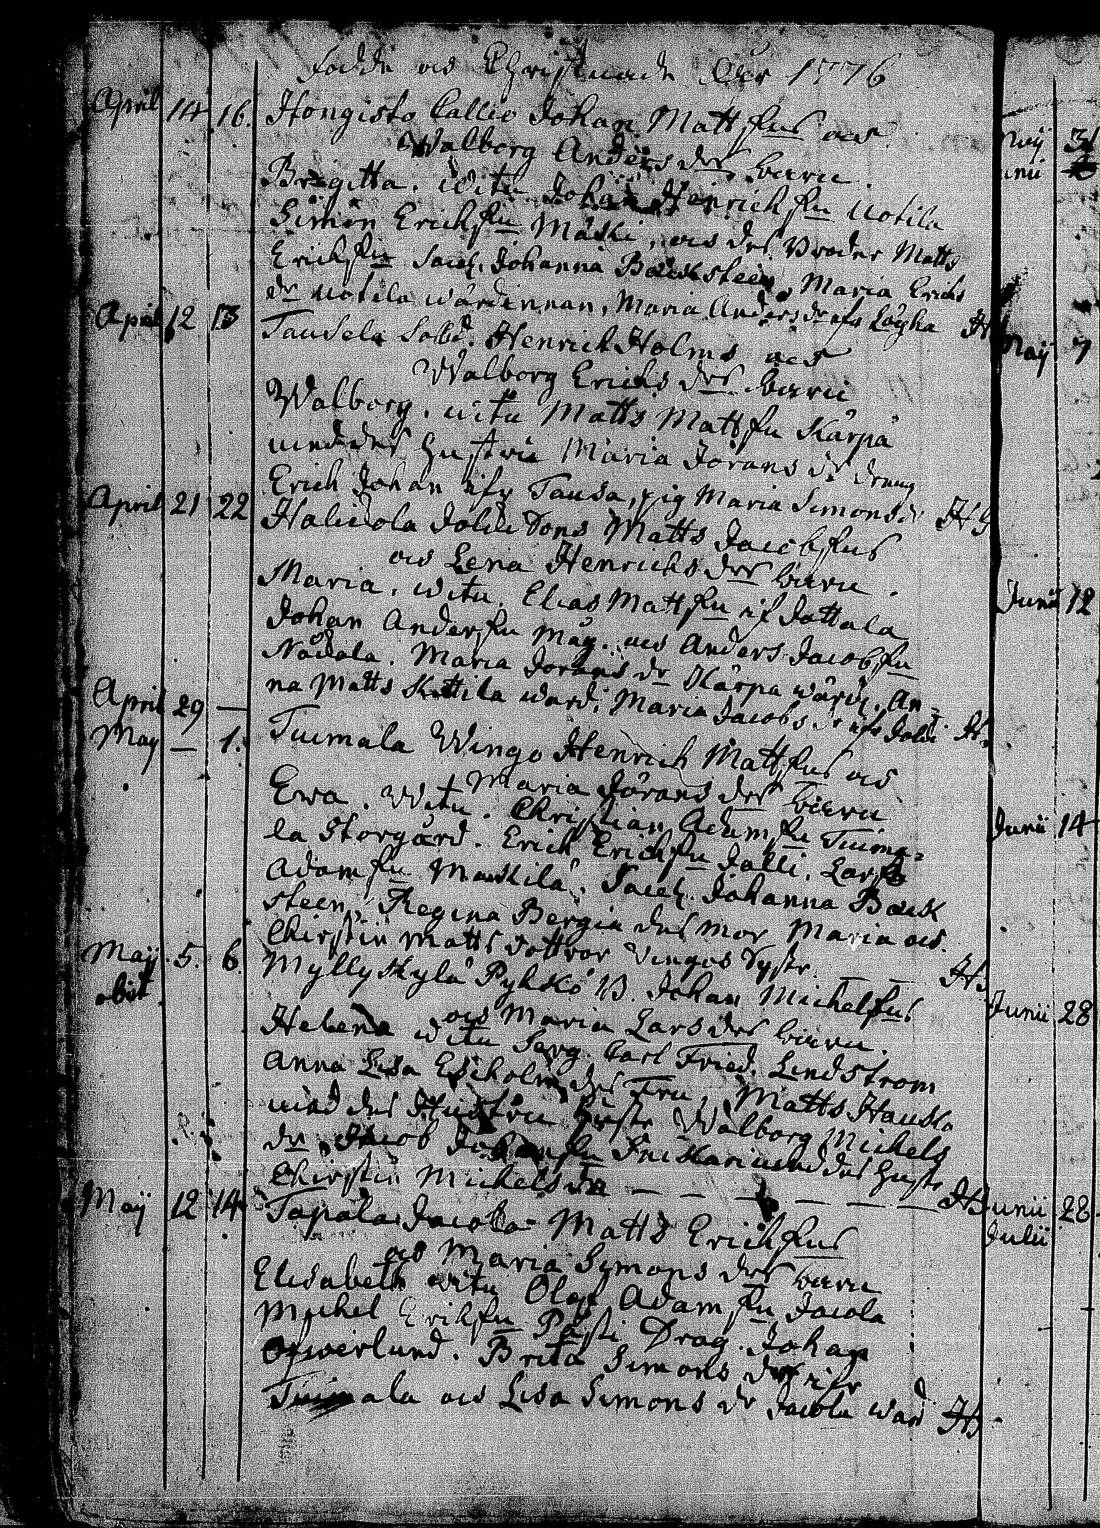 Födde och Christnade Åhr 1776
April 14 16. Hongisto Callio Johan Mattssns och
Walborg Anders drs barn.
Brigitta. witn. Johan Henrichssn Uotila
Simon Erichssn Mäski, och des Broder Matts
Erichssn Johanna Backsteen, Maria Erichs
dr Uotila wärdinnan, Maria Anders dr ifr Löyha
April 12 13 Tausela Sold. Henrich Holms och
Walborg Erichs drs barn
Walborg. witn Matts Mattssn Kärpä
med des hustru Maria Jörans dr dräng
Erich Johan ifr Tausa, pig Maria Simons dr H
April 21 22 Halikola Matts Jacobssns
och Lena Henrichs drs barn.
Maria. witn. Elias Mattssn if Jottala
Johan Anderssn Måg. och Anders Jacobssn
Nådala. Maria Jörans dr Kärpä wärd. An-
na Matts Kettila ward. Maria Jacobs dr ifr H.
April 29 —
May — 1. Tuimala Wingo Henrich Mattssns och
Maria Jörans drs barn
Ewa. Witn. Christian Adamssn Tuima-
la Storgård. Erich Erichssn Jalli. Lars
Adamssn Maskila. Johanna Back
steen, Regina Bergin des mor Maria och
Chirstin Matts dottror Vingos Systr. — — H.
Maij 5. 6. Myllykylä Pyhkö B. Johan Michelssns
obiit
och Maria Lars drs barn.
Helena witn Serg. Carl Fried. Lindstrom
Anna Lisa Ekholm des Fru, Matts Hausla
med des Hustru Walborg Michels
dr, Jacob Johanssn med des hustr
Chirstin Michels dr — — — — — H
Maij 12 14 Tapala Jacola Matts Erichssns
och Maria Simons drs barn
Elisabeth witn Olof Adamssn Jacola
Michel Erikssn Pässi Drag. Johan
Öfwerlund. Brita Simons dr ifr
Tuimala och Lisa Simons dr Jacola ward H.
Maij 31
Junii
Maij 7
Junii 12
Junii 14
Junii 28
Junii 28
Julii